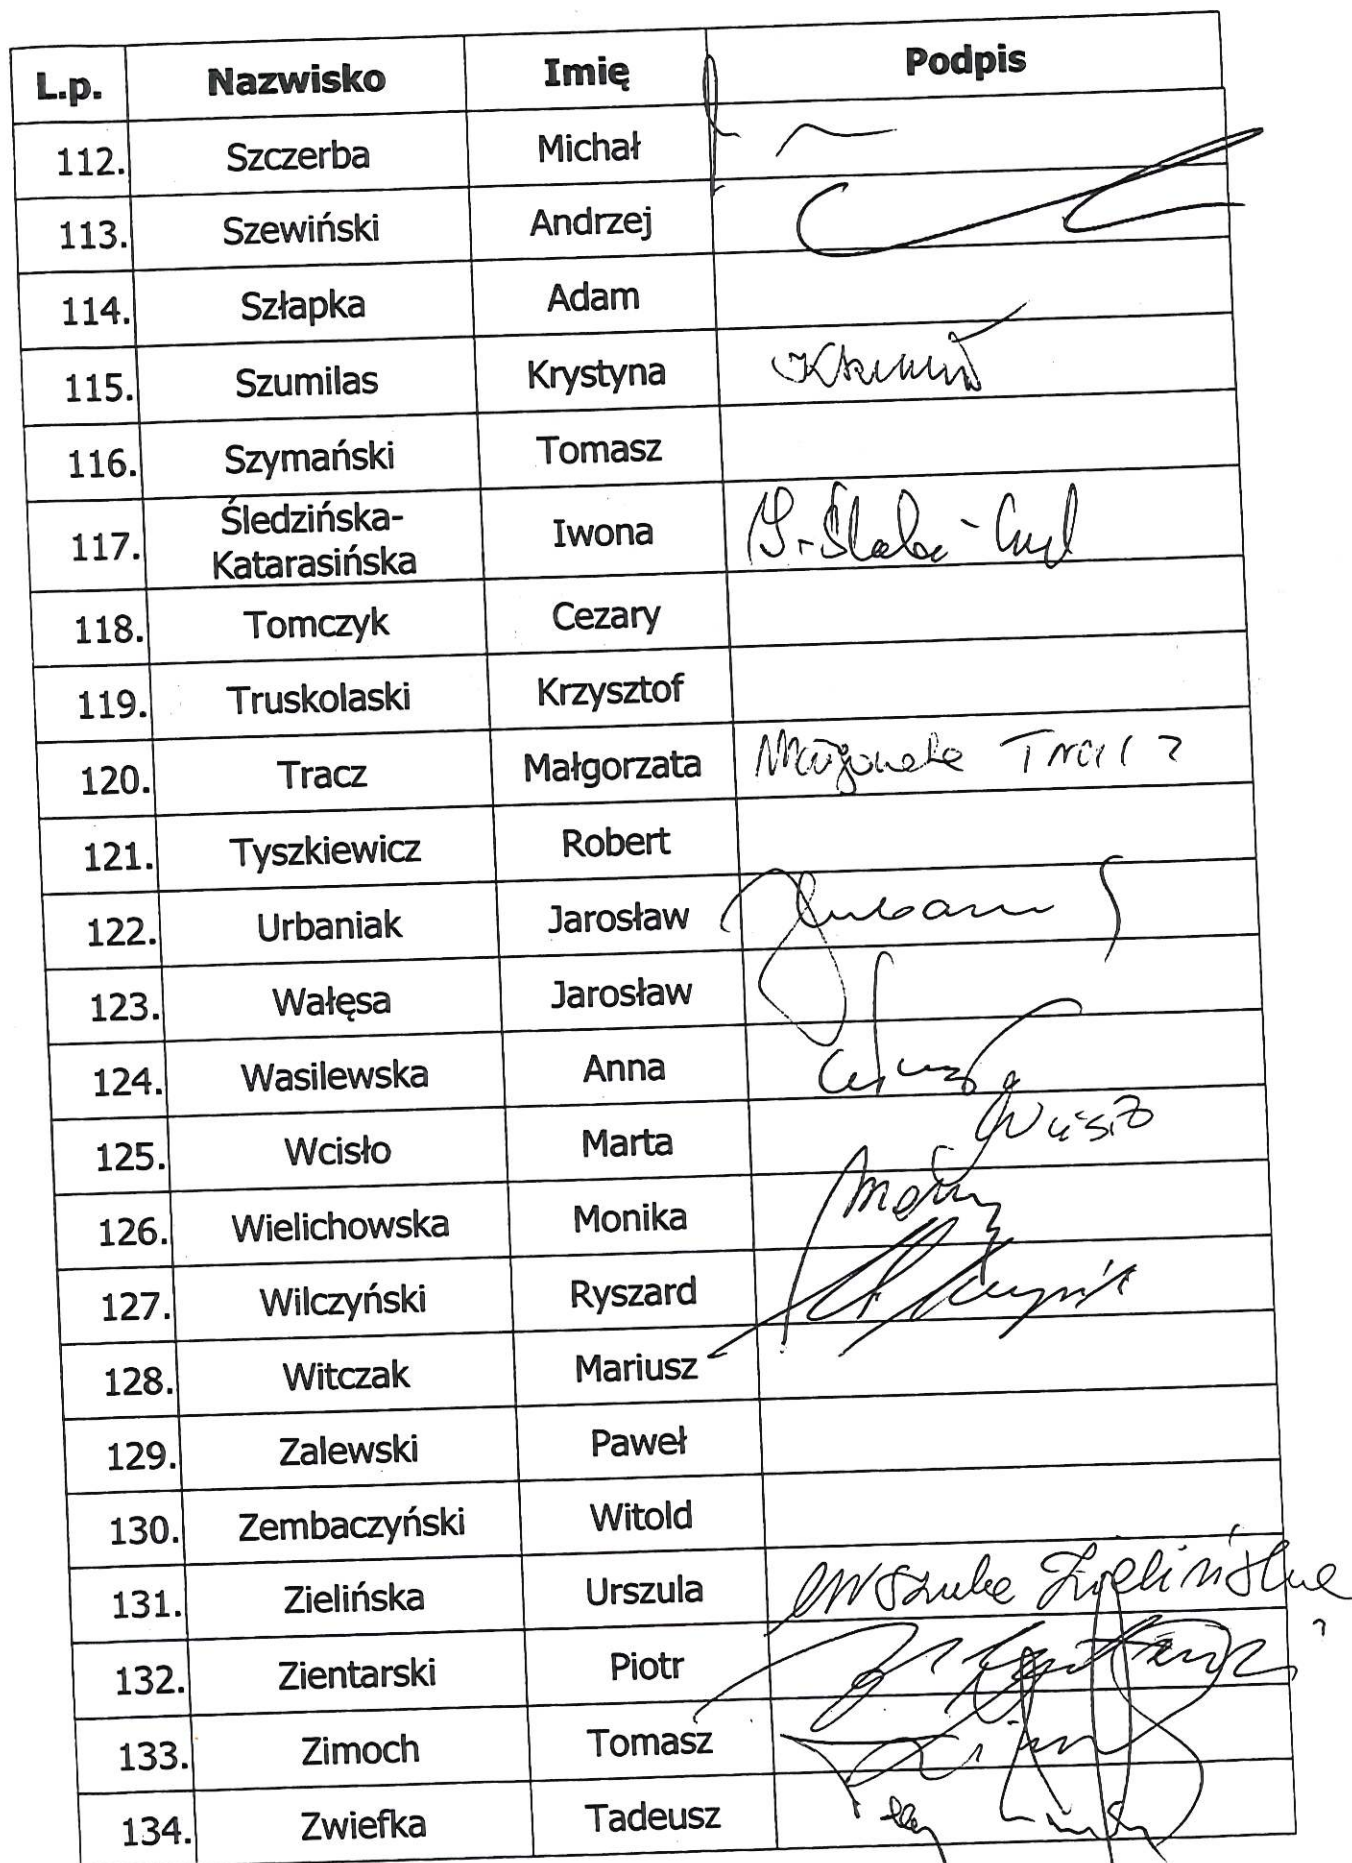 L.p. Nazwisko Imię Podpis
112. Szczerba Michał
113. Szewiński Andrzej
114. Szłapka Adam
115. Szumilas Krystyna
116. Szymański Tomasz
117. Śledzińska-
Katarasińska Iwona
118. Tomczyk Cezary
119. Truskolaski Krzysztof
120. Tracz Małgorzata Małgorzata Tracz
121. Tyszkiewicz Robert
122. Urbaniak Jarosław
123. Wałęsa Jarosław
124. Wasilewska Anna
125. Wcisło Marta
126. Wielichowska Monika
127. Wilczyński Ryszard
128. Witczak Mariusz
129. Zalewski Paweł
130. Zembaczyński Witold
131. Zielińska Urszula Urszula Zielińska
132. Zientarski Piotr
133. Zimoch Tomasz
134. Zwiefka Tadeusz